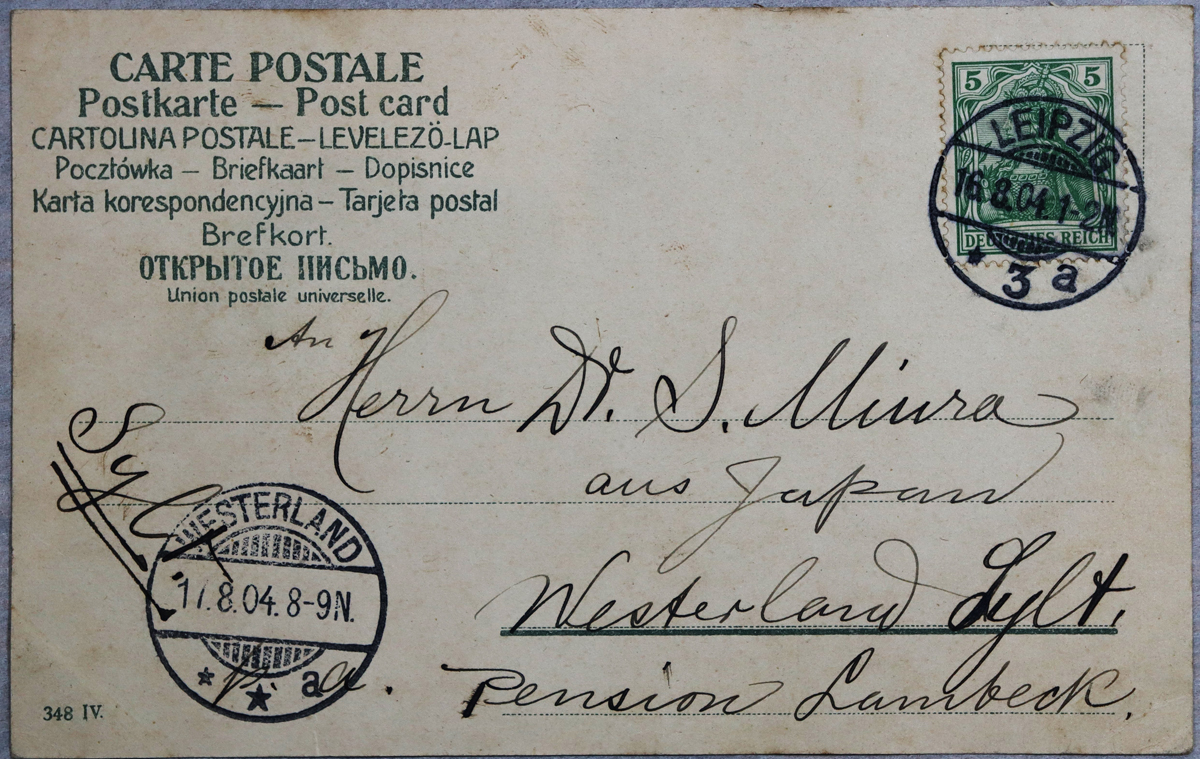 CARTE POSTALE
Postkarte — Post card
CARTOLINA POSTALE – LEVELEZÖ-LAP
Pocztówka – Briefkaart – Dopisnice
Karta korespondencyjna – Tarjeta postal
Brefkort.
ОТКРЫТОЕ ПИСЬМО.
Union postale universelle.
5 5
DEUTSCHES REICH
LEIPZIG
16.8.04 1-2N
* 3 a
An Herrn Dr. S. Miura
aus Japan
Westerland Sylt.
Pension Lambeck.
Sylt
WESTERLAND
17.8.04. 8-9N.
* * a
348 IV.